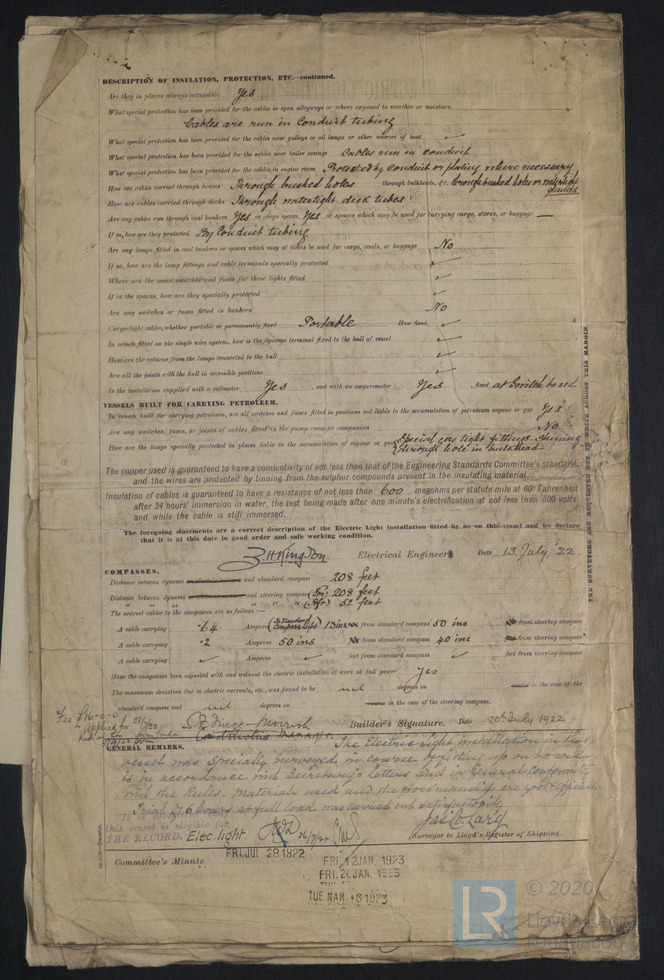 DESCRIPTION OF INSULATION, PROTECTION, ETC.—continued.
Are they in places always accessible Yes
What special protection has been provided for the cables in open alleyways or where exposed to weather or moisture
Cables are run in Conduit tubing
What special protection has been provided for the cables near galleys or oil lamps or other sources of heat ✓
What special protection has been provided for the cables near boiler casings Cables run in conduit
What special protection has been provided for the cables in engine room Protected by conduit or plating where necessary
How are cables carried through beams Through bushed holes through bulkheads, &c. through bushed holes or watertight glands
How are cables carried through decks Through watertight deck tubes
Are any cables run through coal bunkers Yes or cargo spaces Yes or spaces which may be used for carrying cargo, stores, or baggage —
If so, how are they protected By Conduit tubing
Are any lamps fitted in coal bunkers or spaces which may at times be used for cargo, coals, or baggage No
If so, how are the lamp fittings and cable terminals specially protected ✓
Where are the main switches and fuses for these lights fitted ✓
If in the spaces, how are they specially protected ✓
Are any switches or fuses fitted in bunkers No
Cargo light cables, whether portable or permanently fixed Portable How fixed ✓
In vessels fitted on the single wire system, how is the dynamo terminal fixed to the hull of vessel ✓
How are the returns from the lamps connected to the hull ✓
Are all the joints with the hull in accessible positions ✓
Is the installation supplied with a voltmeter Yes , and with an amperemeter Yes , fixed at Switch board
VESSELS BUILT FOR CARRYING PETROLEUM.
In vessels built for carrying petroleum, are all switches and fuses fitted in positions not liable to the accumulation of petroleum vapour or gas Yes
Are any switches, fuses, or joints of cables fitted in the pump room or companion No
How are the lamps specially protected in places liable to the accumulation of vapour or gas Special gas tight fittings shining
through hole in bulkhead
The copper used is guaranteed to have a conductivity of not less than that of the Engineering Standards Committee's standard,
and the wires are protected by tinning from the sulphur compounds present in the insulating material.
Insulation of cables is guaranteed to have a resistance of not less than 600 megohms per statute mile at 60° Fahrenheit
after 24 hours' immersion in water, the test being made after one minute's electrification at not less than 500 volts
and while the cable is still immersed.
The foregoing statements are a correct description of the Electric Light installation fitted by us on this vessel and we declare
that it is at this date in good order and safe working condition.
Electrical Engineers Date 13 July '22.
COMPASSES.
Distance between dynamo and standard compass 208 feet
Distance between dynamo and steering compass (For) 208 feet
(Aft) 52 feet
The nearest cables to the compasses are as follows:—
A cable carrying ·64 Amperes (In Standard Compass light) 13 ins from standard compass 50 ins from steering compass
A cable carrying ·2 Amperes 50 ins from standard compass 40 ins from steering compass
A cable carrying ✓ Amperes ✓ feet from standard compass ✓ feet from steering compass
Have the compasses been adjusted with and without the electric installation at work at full power Yes
The maximum deviation due to electric currents, etc., was found to be nil degrees on course in the case of the
standard compass and nil degrees on course in the case of the steering compass.
Builder's Signature. Date 20th July 1922
Fee £16-0-0
applied for
GENERAL REMARKS.
The Electric Light installation in this
vessel was specially surveyed in course of fitting up on board
is in accordance with Secretary's letters and in general conformity
with the Rules. Materials used and the workmanship are good & efficient
Trial of 6 hours at full load was carried out satisfactorily
this vessel is eligible for
THE RECORD. Elec light
Surveyor to Lloyd's Register of Shipping.
Committee's Minute FRI. JUL 28 1922
FRI. 12 JAN 1923
FRI. 26 JAN. 1923
TUE. MAR -6 1923
THE SURVEYORS ARE REQUESTED NOT TO WRITE ACROSS THIS MARGIN
LR
© 2020
Lloyd's Register
Foundation